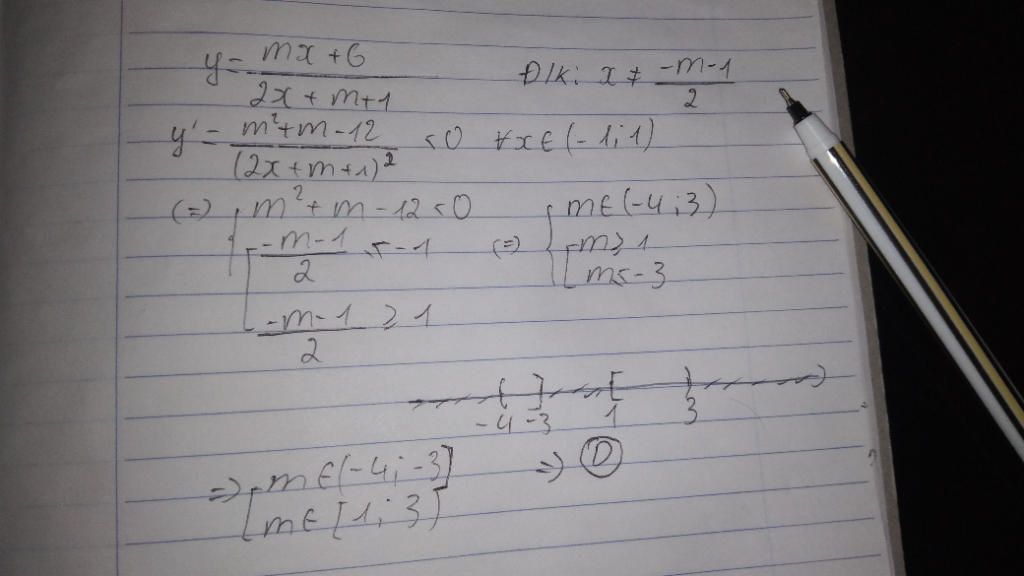 y = \frac{mx+6}{2x+m+1} Đ/K: x ≠ \frac{-m-1}{2}
y' = \frac{m²+m-12}{(2x+m+1)²} < 0 ∀x∈(-1;1)
(=) { m²+m-12<0 (=) { m∈(-4;3)
[ \frac{-m-1}{2} ≤ -1 [ m ≥ 1
\frac{-m-1}{2} ≥ 1 m ≤ -3
( ] [ )
-4 -3 1 3
=> [ m∈(-4;-3] => D
m∈[1;3)